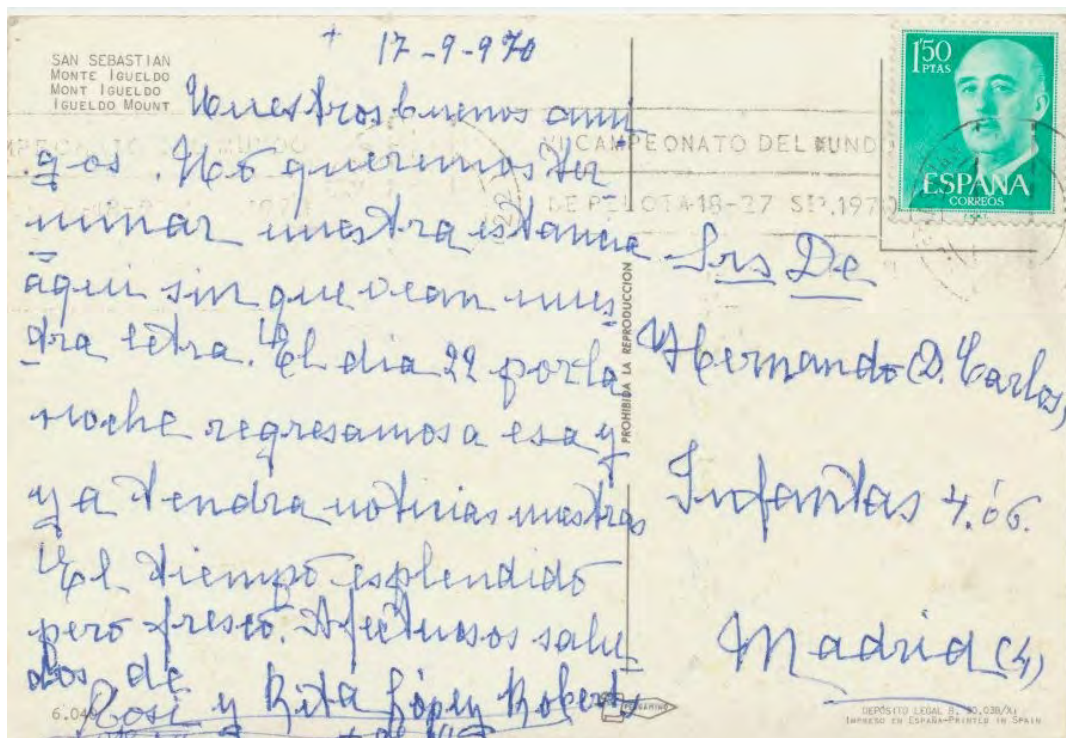 SAN SEBASTIAN
MONTE IGUELDO
MONT IGUELDO
IGUELDO MOUNT
+ 17-9-970
Nuestros buenos ami
gos. No queremos ter
minar nuestra estancia
aqui sin que vean nues
tra letra. El dia 22 por la
noche regresamos a esa y
ya tendra noticias nuestras
El tiempo esplendido
pero fresco. Afectuosos salu
dos de
y Rita López Roberts
6.049
PROHIBIDA LA REPRODUCCION
PERGAMINO
1'50
PTAS
ESPAÑA
CORREOS
VI CAMPEONATO DEL MUNDO
DE PELOTA-18-27 SEP.1970
Srs De
Hernando (D. Carlos)
Infantas 4. ó 6.
Madrid (4)
DEPÓSITO LEGAL B.
IMPRESO EN ESPAÑA-PRINTED IN SPAIN